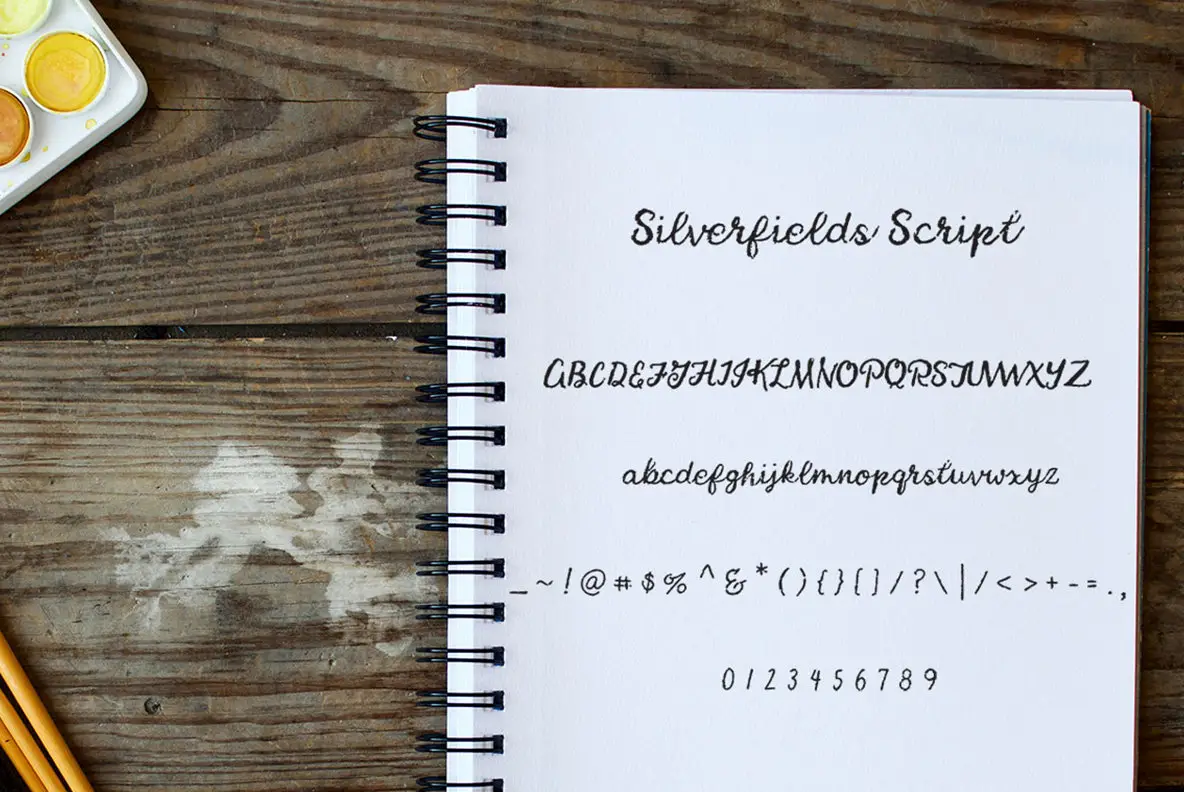 Silverfields Script
ABCDEFGHIJKLMNOPQRSTUVWXYZ
abcdefghijklmnopqrstuvwxyz
_ ~ ! @ # $ % ^ & * ( ) { } [ ] / ? \ | / < > + - = . ,
0 1 2 3 4 5 6 7 8 9